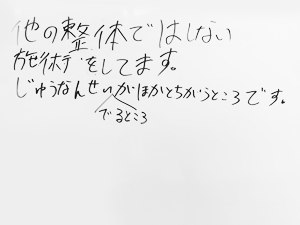 他の整体ではしない
施術をしてます。
じゅうなんせいがほかとちがうところです。
でるところ